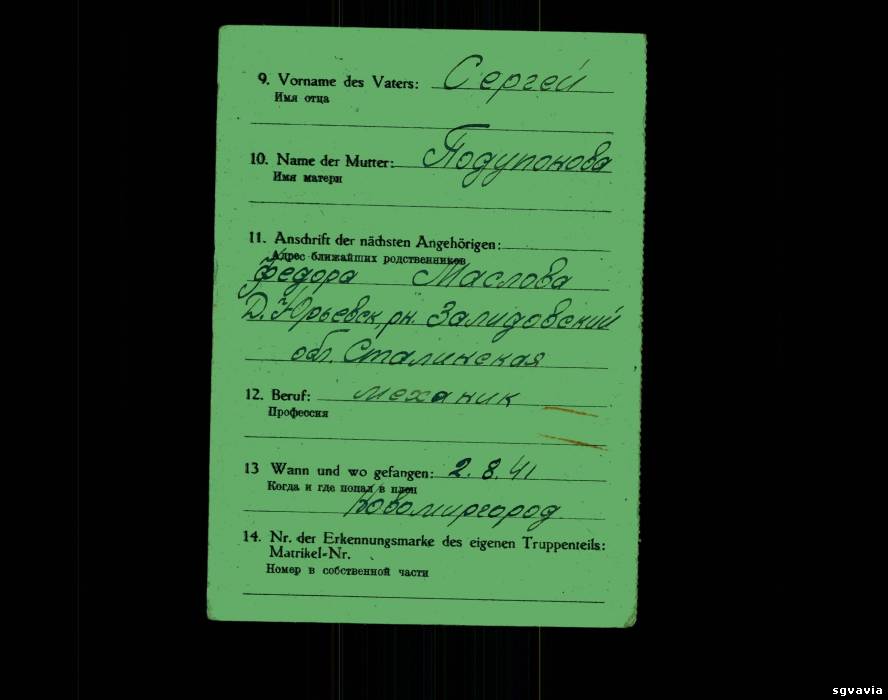 9. Vorname des Vaters: Сергей
Имя отца
10. Name der Mutter: Подупонова
Имя матери
11. Anschrift der nächsten Angehörigen:
Адрес ближайших родственников
Федора Маслова
Д. Юрьевск, рн. Залидовский
обл. Сталинская
12. Beruf: механик
Профессия
13 Wann und wo gefangen: 2. 8. 41
Когда и где попал в плен
Новомиргород
14. Nr. der Erkennungsmarke des eigenen Truppenteils:
Matrikel-Nr.
Номер в собственной части
sgvavia